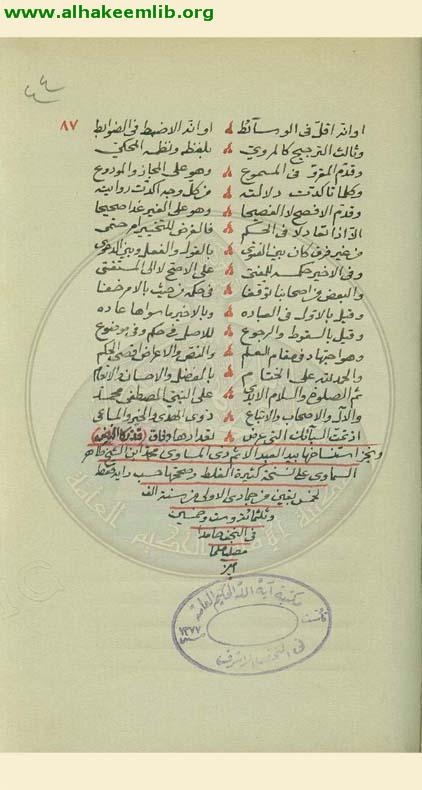 www.alhakeemlib.org
٤٤
٨٧
او انه اقل فى الوسائط او انه الاضبط فى الضوابط
وثالث الترجيح كالمروي بلفظه ونظمه المحكي
وقدم المؤرق فى المسموع وهو على المجاز والمودوع
وكلما تاكدت دلالته من كل وجه اكدت روايته
وقدم الافصح لا الفصيحا وهو على الغير غدا صحيحا
اذا تعادلا فى الحكم فالفرض التخيير
من غير فرق كان بين الفتوى بالقول والفعل وبين الدعوى
وفى الاخير حكمه للمفتي على الاصح لا الى المستفتي
والبعض من اصحابنا توقفا فى حكمه من حيث بالامر خفا
وقيل بالاول فى العباده وبالاخير ما سواها عاده
وقيل بالسقوط والرجوع للاصل فى حكم وفى موضوع
وهو اجتهاد فى مقام العلم والنقض والاعراض اقصى الحكم
والحمد لله على الختام بالفضل والاحسان والانعام
ثم الصلوة والسلام الابدي على النبي المصطفى محمد
والآل والاصحاب والاتباع ذوى الهدى والخير والمساعي
السبائك التى
ونجز استنساخها بيد العبد الاثيم محمد ابن الشيخ طاهر
السماوى على نسخة كثيرة الغلط وصححها حسب
لخمس بقين من جمادى الاولى من سنة الف
وثلثمائة وست وخمسين
فى النجف حامدا
مصليا مسلما
مكتبة آية الله الحكيم العامة
١٣٧٧
فى النجف الاشرف